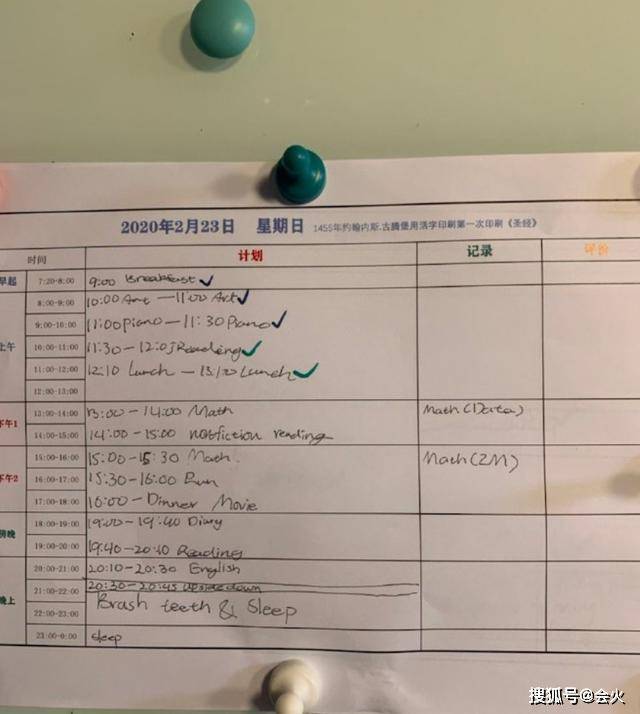 2020年2月23日 星期日 1455年约翰内斯.古腾堡用活字印刷第一次印刷《圣经》
时间 计划 记录 评价
早起 7:20-8:00 9:00 Breakfast
8:00-9:00 10:00 Art — 11:00 Art
上午 9:00-10:00 11:00 piano — 11:30 Piano
10:00-11:00 11:30 - 12:0 Reading
11:00-12:00 12:10 Lunch — 13:00 Lunch
12:00-13:00
下午1 13:00-14:00 13:00 - 14:00 Math Math (Data)
14:00-15:00 14:00 - 15:00 nonfiction reading
15:00-16:00 15:00 - 15:30 Math. Math (2M)
下午2 16:00-17:00 15:30 - 16:00 Run
17:00-18:00 16:00 - Dinner Movie
傍晚 18:00-19:00 19:00 - 19:40 Diary
19:00-20:00 19:40 - 20:10 Reading
20:00-21:00 20:10 - 20:30 English
晚上 21:00-22:00 20:30 - 20:45 upside down
22:00-23:00 Brash teeth & Sleep
23:00-0:00 Sleep
搜狐号@会火